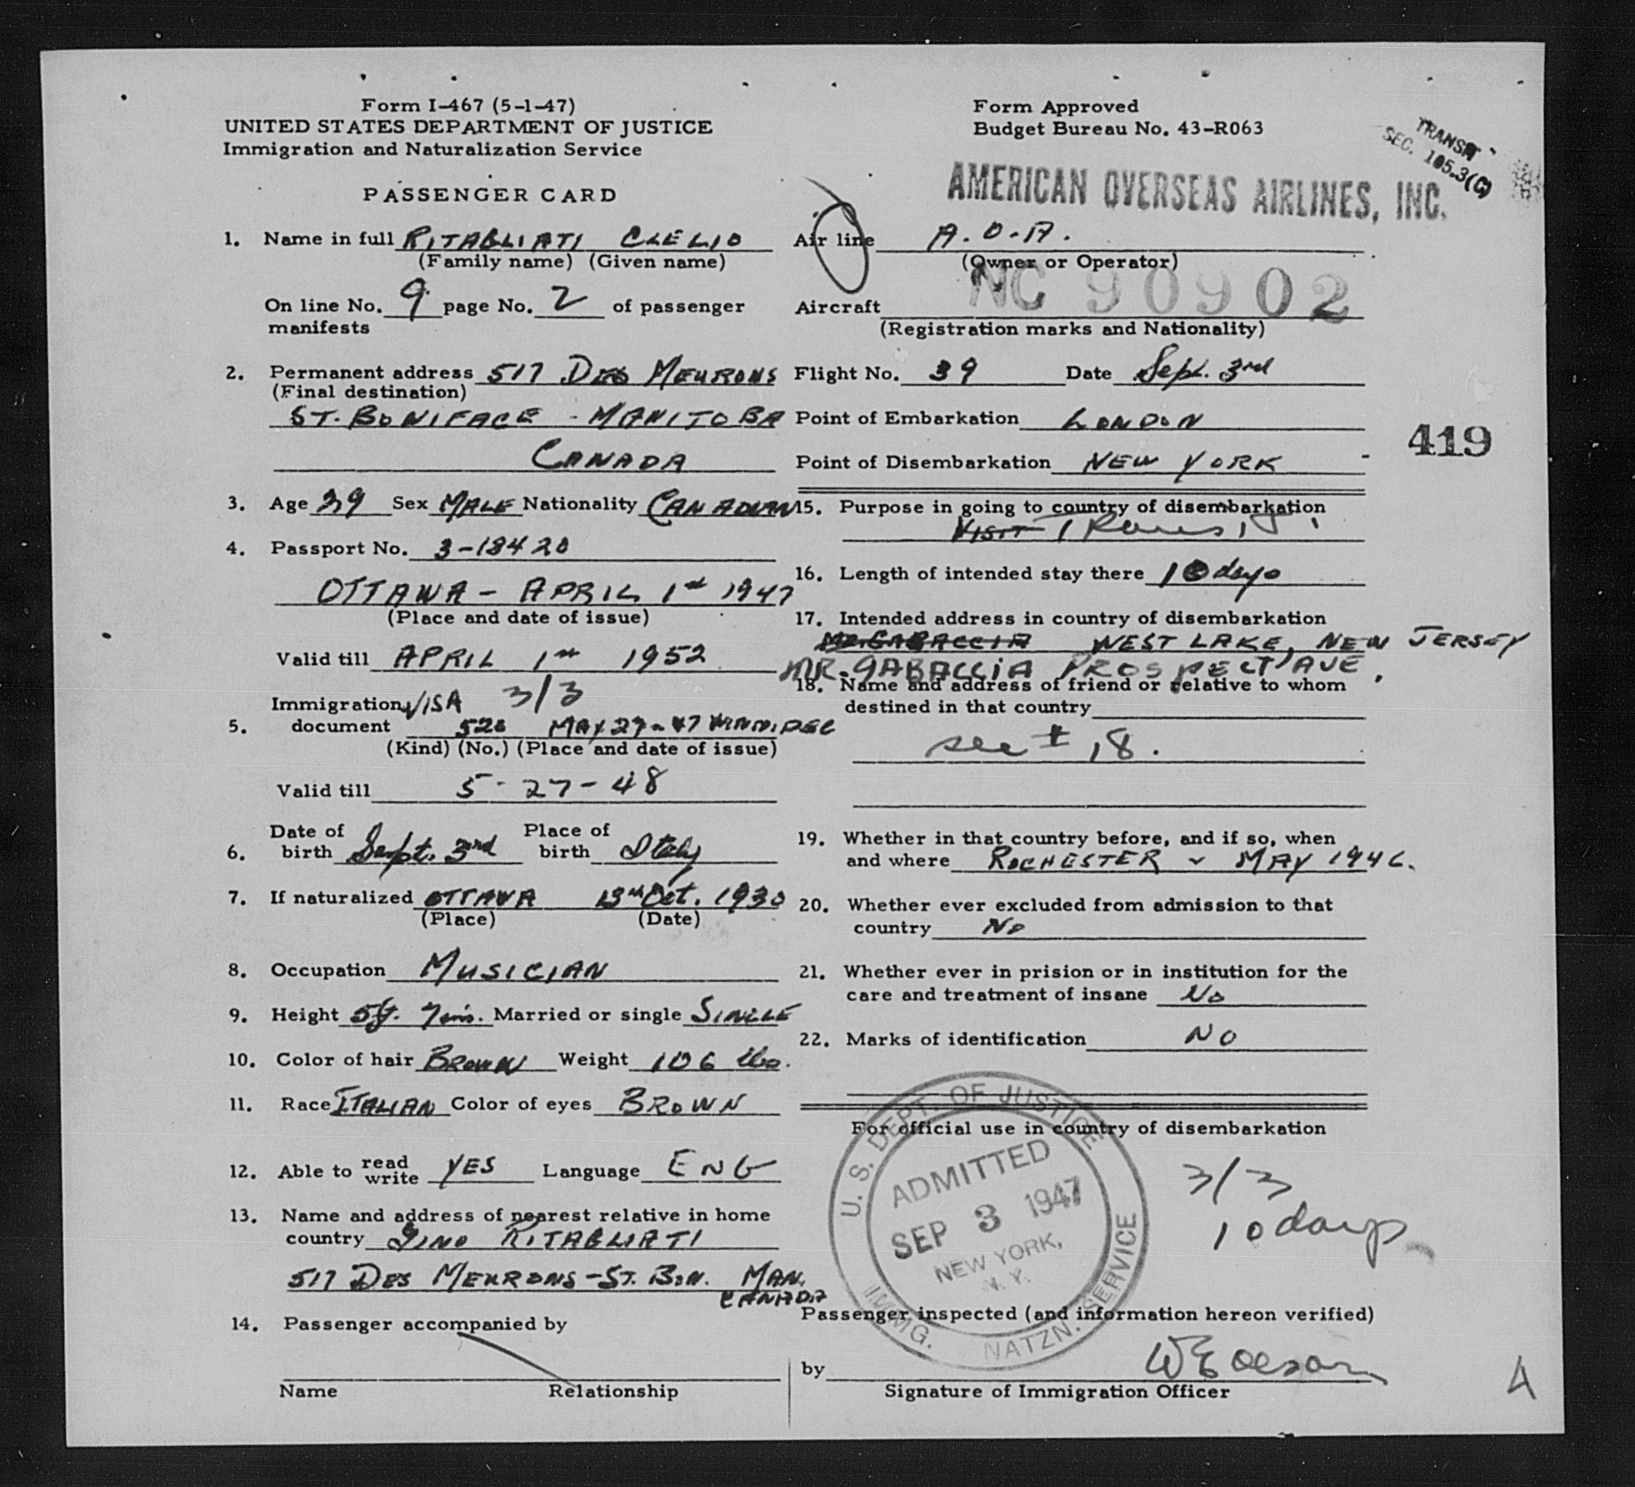 Form I-467 (5-1-47)
UNITED STATES DEPARTMENT OF JUSTICE
Immigration and Naturalization Service
PASSENGER CARD
Form Approved
Budget Bureau No. 43-R063
TRANSIT
SEC. 105.3(C)
AMERICAN OVERSEAS AIRLINES, INC.
1. Name in full RITAGLIATI CLELIO
(Family name) (Given name)
On line No. 9 page No. 2 of passenger
manifests
2. Permanent address 517 DES MEURONS
(Final destination)
ST. BONIFACE - MANITOBA
CANADA
3. Age 39 Sex MALE Nationality CANADIAN
4. Passport No. 3-18420
OTTAWA - APRIL 1st 1947
(Place and date of issue)
Valid till APRIL 1st 1952
Immigration VISA 3/3
5. document 528 MAY 27-47 WINNIPEG
(Kind) (No.) (Place and date of issue)
Valid till 5-27-48
6. Date of birth Sept. 3rd Place of birth Italy
7. If naturalized OTTAWA 13th Oct. 1930
(Place) (Date)
8. Occupation MUSICIAN
9. Height 5ft. 7ins. Married or single SINGLE
10. Color of hair BROWN Weight 106 lbs.
11. Race ITALIAN Color of eyes BROWN
12. Able to read write YES Language ENG
13. Name and address of nearest relative in home
country GINO RITAGLIATI
517 DES MEURONS - ST. BON. MAN.
CANADA
14. Passenger accompanied by
Name Relationship
Air line A.O.A.
(Owner or Operator)
Aircraft NC 90902
(Registration marks and Nationality)
Flight No. 39 Date Sept. 3rd
Point of Embarkation LONDON
Point of Disembarkation NEW YORK
419
15. Purpose in going to country of disembarkation
VISIT Transit
16. Length of intended stay there 10 days
17. Intended address in country of disembarkation
MR. GABACCIA WEST LAKE, NEW JERSEY
MR. GABACCIA PROSPECT AVE.
18. Name and address of friend or relative to whom
destined in that country
see # 18.
19. Whether in that country before, and if so, when
and where ROCHESTER - MAY 1946.
20. Whether ever excluded from admission to that
country NO
21. Whether ever in prision or in institution for the
care and treatment of insane NO
22. Marks of identification NO
For official use in country of disembarkation
U. S. DEPT. OF JUSTICE
ADMITTED
SEP 3 1947
NEW YORK,
N. Y.
IMMG. NATZN. SERVICE
3/3
10 days
Passenger inspected (and information hereon verified)
by
Signature of Immigration Officer
4